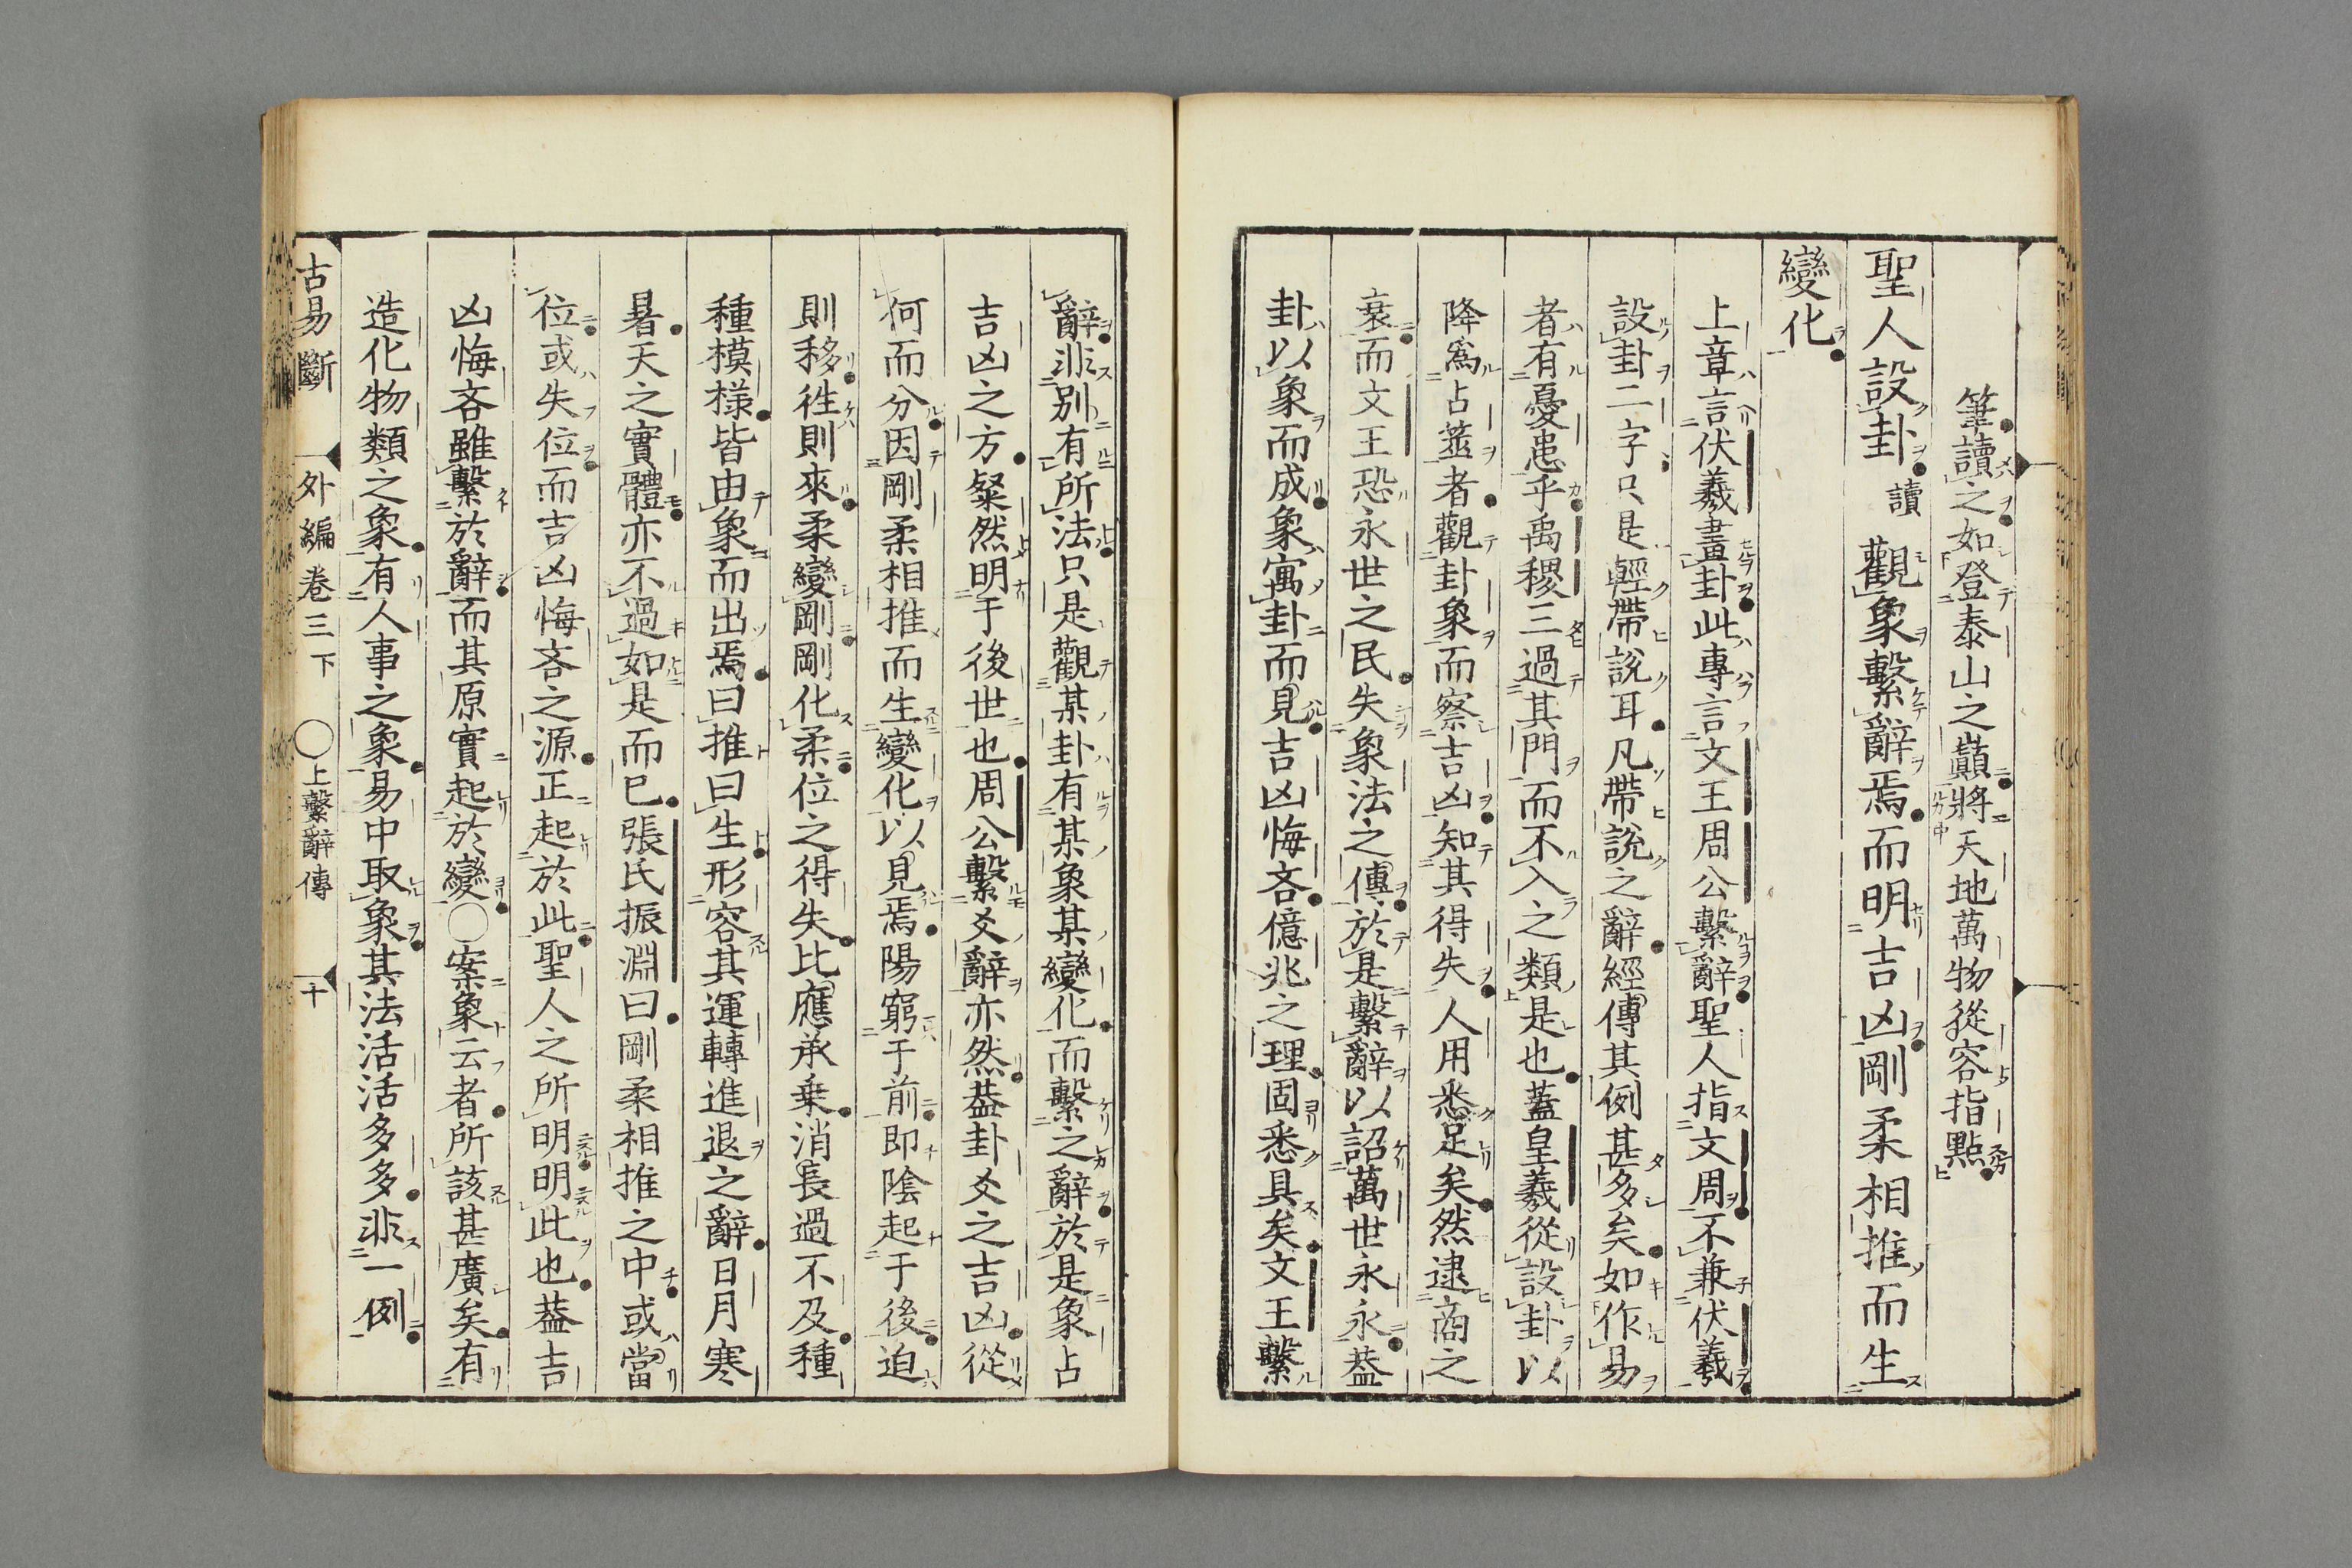 筆讀之如登泰山之巔將天地萬物從容指點
聖人設卦讀觀象繫辭焉而明吉凶剛柔相推而生
變化
上章言伏羲畫卦此專言文王周公繫辭聖人指文周不兼伏羲
設卦二字只是輕帶說耳凡帶說之辭經傳其例甚多矣如作易
者有憂患乎禹稷三過其門而不入之類是也蓋皇羲從設卦以
降爲占莁者觀卦象而察吉凶知其得失人用悉足矣然逮商之
衰而文王恐永世之民失象法之傳於是繫辭以詔萬世永永葢
卦以象而成象寓卦而見吉凶悔吝億兆之理固悉具矣文王繫
辭非別有所法只是觀某卦有某象某變化而繫之辭於是象占
吉凶之方粲然明于後世也周公繫爻辭亦然葢卦爻之吉凶從
何而分因剛柔相推而生變化以見焉陽窮于前即陰起于後迫
則移徃則來柔變剛剛化柔位之得失比應承乗消長過不及種
種模様皆由象而出焉曰推曰生形容其運轉進退之辭日月寒
暑天之實體亦不過如是而已張氏振淵曰剛柔相推之中或當
位或失位而吉凶悔吝之源正起於此聖人之所明明此也葢吉
凶悔吝雖繫於辭而其原實起於變○案象云者所該甚廣矣有
造化物類之象有人事之象易中取象其法活活多多非一例
古易斷　外編卷三下　○上繫辭傳　十